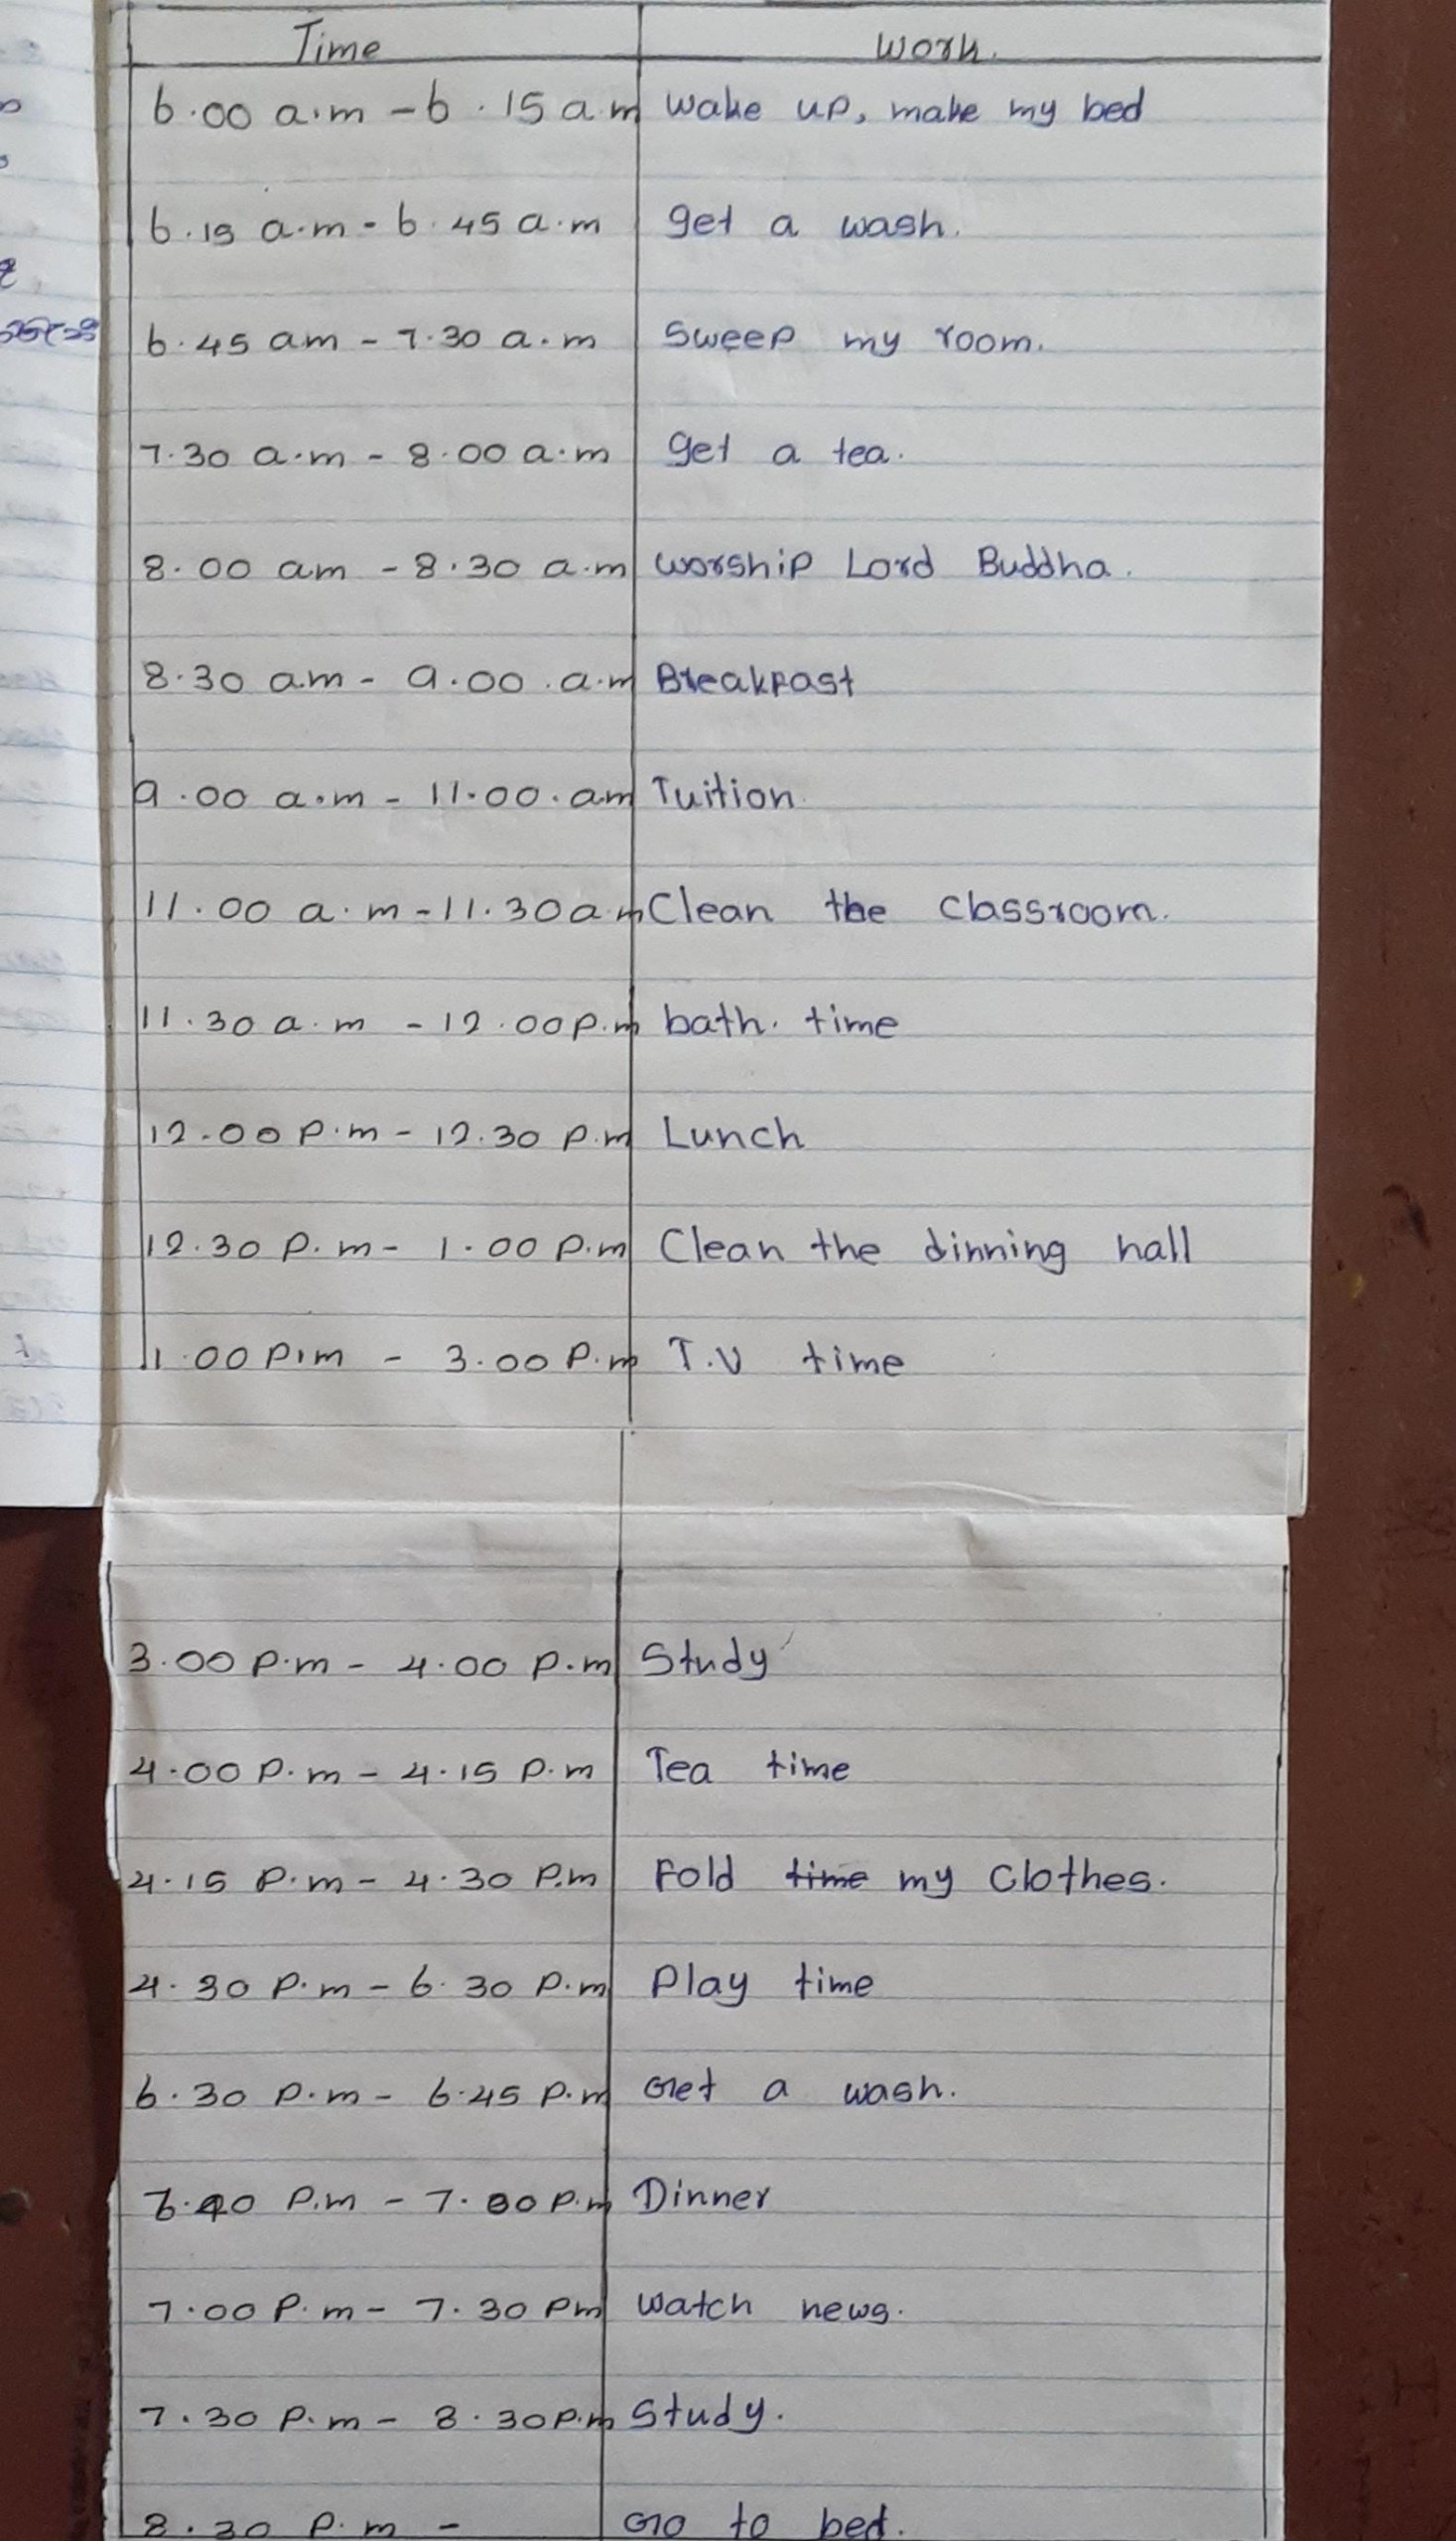 Time Work.
6.00 a.m - 6.15 a.m wake up, make my bed
6.15 a.m - 6.45 a.m get a wash.
6.45 am - 7.30 a.m Sweep my room.
7.30 a.m - 8.00 a.m get a tea.
8.00 am - 8.30 a.m worship Lord Buddha.
8.30 a.m - 9.00 .a.m Breakfast
9.00 a.m - 11.00.am Tuition
11.00 a.m - 11.30 a.m Clean the classroom.
11.30 a.m - 12.00 p.m bath. time
12.00 P.m - 12.30 p.m Lunch
12.30 P.m - 1.00 P.m Clean the dinning hall
1.00 P.m - 3.00 P.m T.V time
3.00 P.m - 4.00 P.m Study
4.00 P.m - 4.15 P.m Tea time
4.15 P.m - 4.30 P.m Fold time my clothes.
4.30 P.m - 6.30 P.m Play time
6.30 P.m - 6.45 P.m Get a wash.
P.m - 7.00 P.m Dinner
7.00 P.m - 7.30 Pm watch news.
7.30 P.m - 8.30 P.m Study.
8.30 P.m - Go to bed.